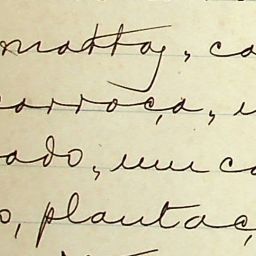 mattos, ca
carroça, u
ado, um ca
o, plantaç